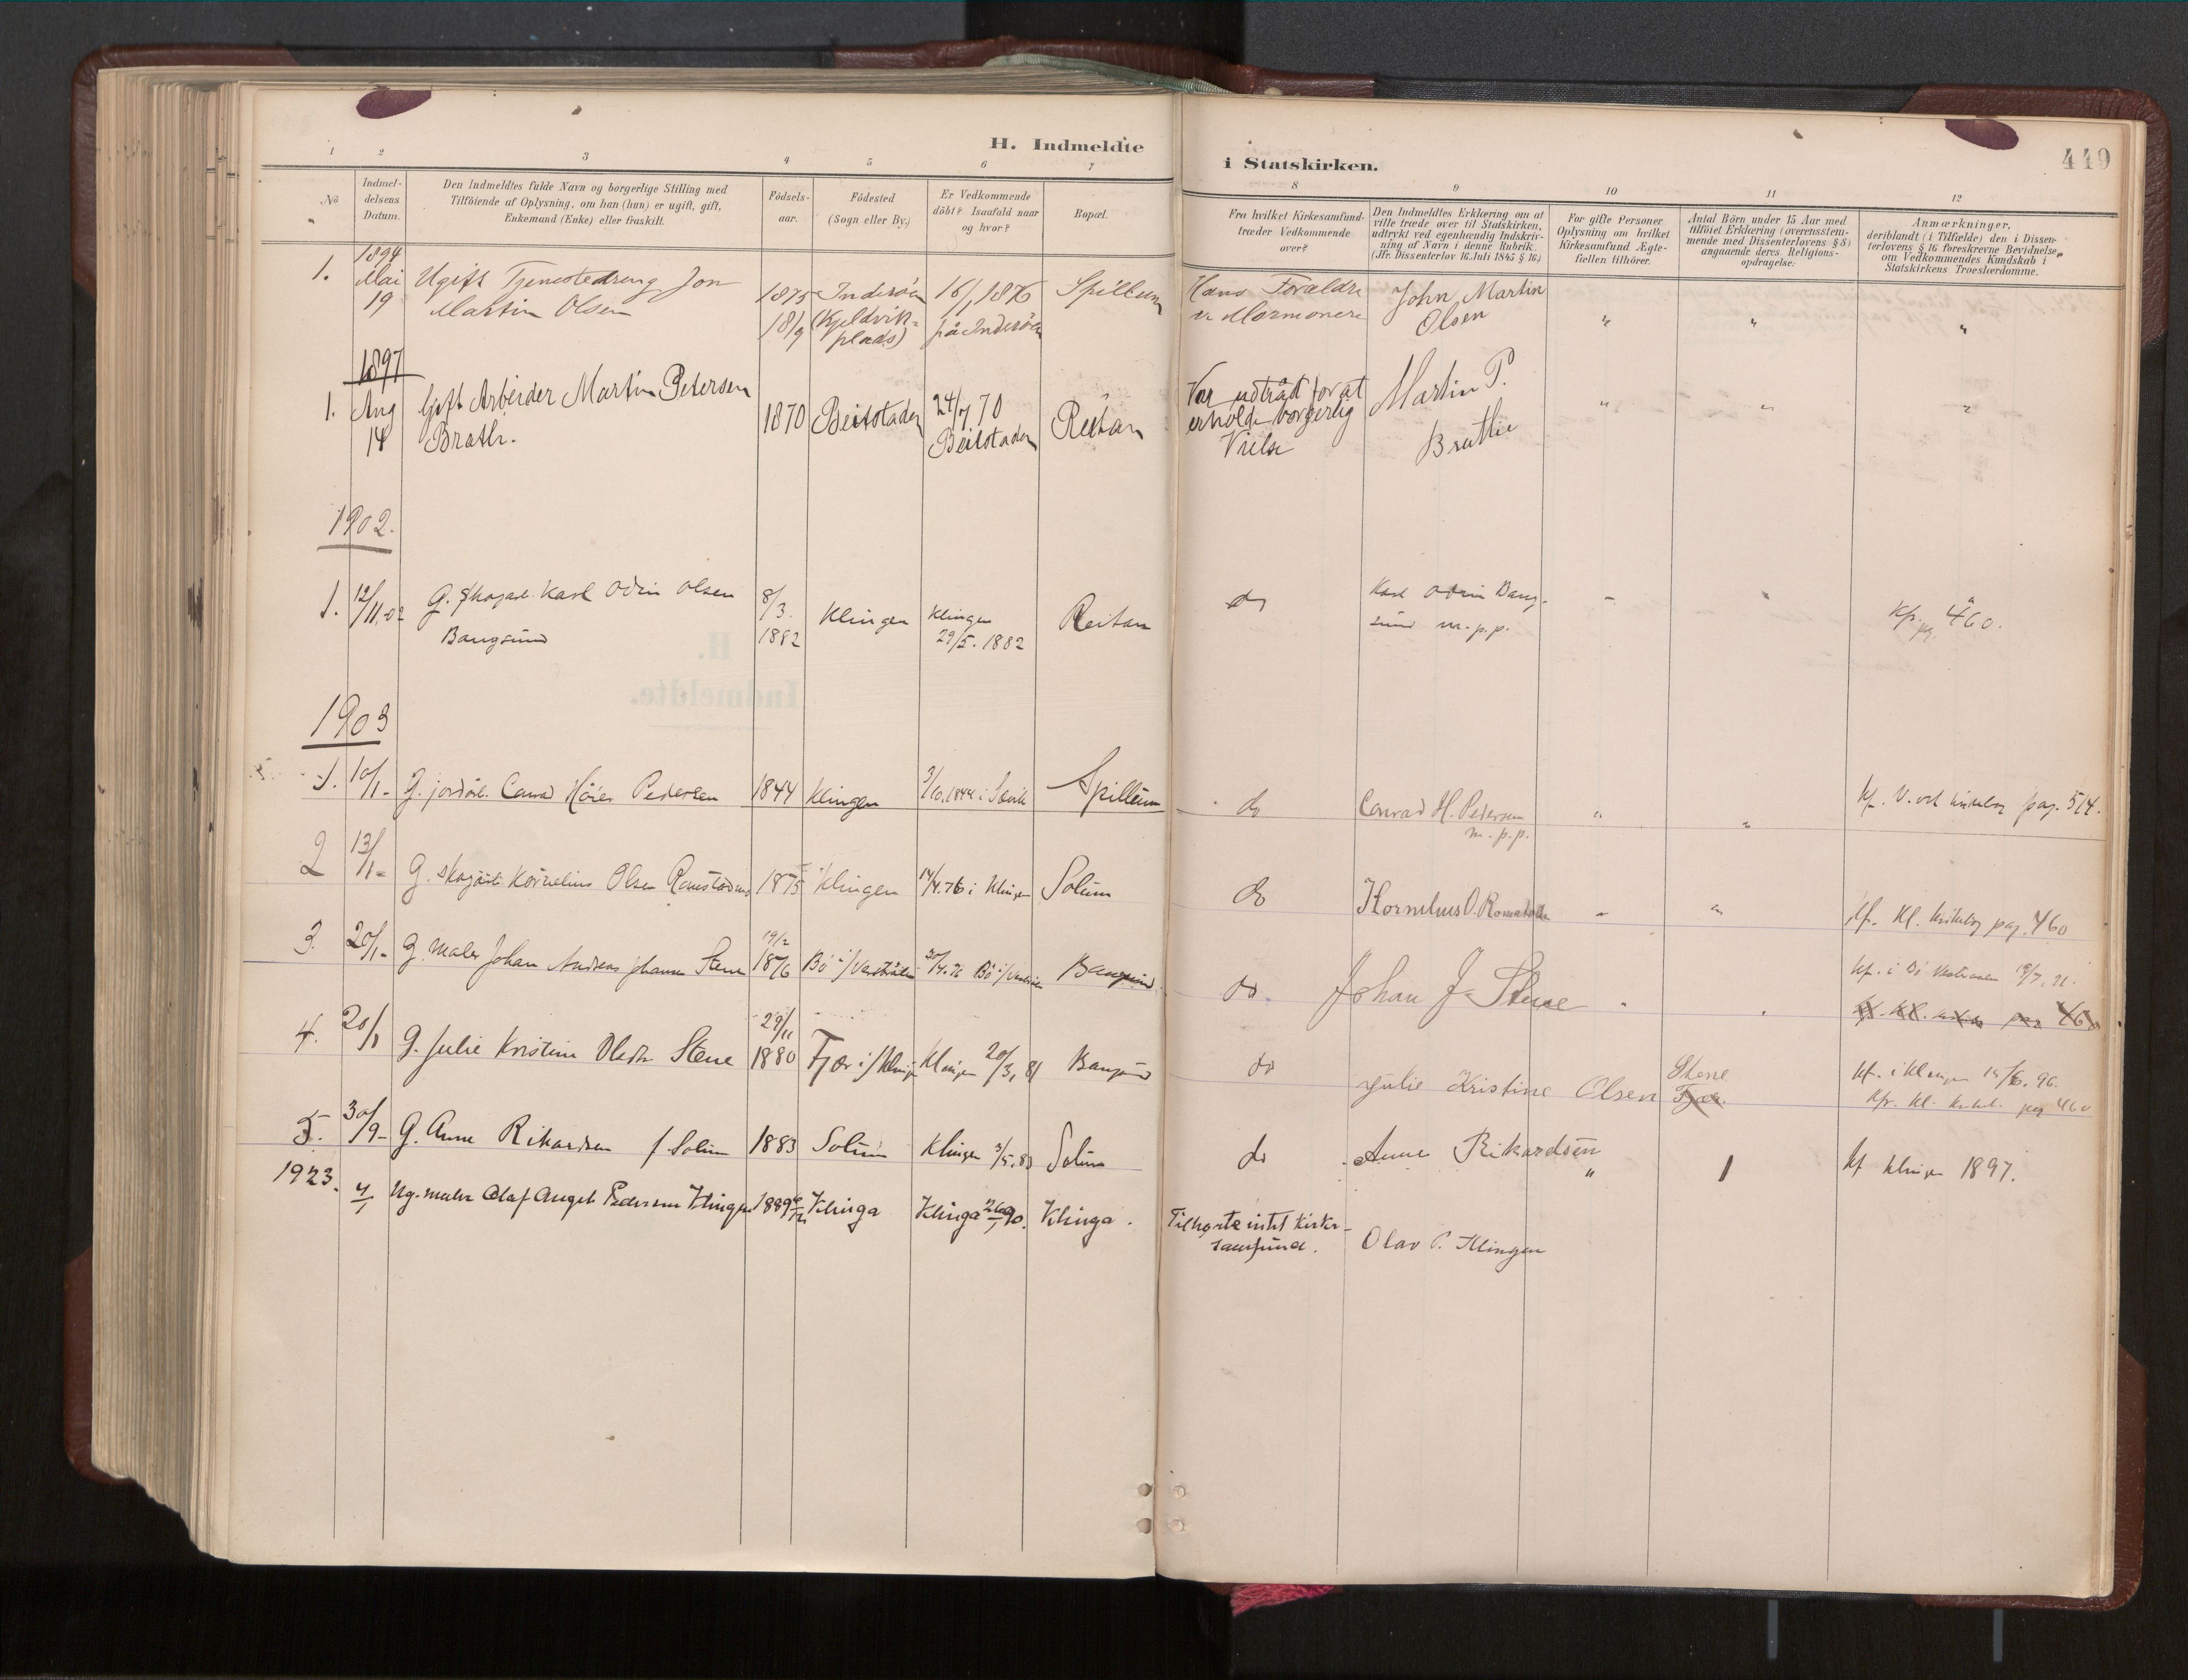 H. Indmeldte
i Statskirken.
449
1 2 3 4 5 6 7
8 9 10 11 12
No
Indmel-
delsens
Datum.
Den Indmeldtes fulde Navn og borgerlige Stilling med
Tilföiende af Oplysning, om han (hun) er ugift, gift,
Enkemand (Enke) eller fraskilt.
Födsels-
aar.
Födested
(Sogn eller By.)
Er Vedkommende
döbt? Isaafald naar
og hvor?
Bopæl.
Fra hvilket Kirkesamfund
træder Vedkommende
over?
Den Indmeldtes Erklæring om at
ville træde over til Statskirken,
udtrykt ved egenhændig Indskriv-
ning af Navn i denne Rubrik.
(Jfr. Dissenterlov 16 Juli 1845 § 16)
For gifte Personer
Oplysning om hvilket
Kirkesamfund Ægte-
fællen tilhörer.
Antal Börn under 15 Aar med
tilföiet Erklæring (overensstem-
mende med Dissenterlovens § 8)
angaaende deres Religions-
opdragelse.
Anmærkninger,
deriblandt (i Tilfælde) den i Dissen-
terlovens § 16 foreskrevne Bevidnelse,
om Vedkommendes Kundskab i
Statskirkens Troeslærdomme.
1.
1894
Mai
19
Ugift Tjenestedreng Jon
Martin Olsen
1875
18/9
Inderöen
(Kjeldvik-
plads)
16/1 1876
på Inderöen
Spillum
Hans Forældre
v. Mormonere
John Martin
Olsen
" " "
1897
1.
Aug
14
Gift Arbeider Martin Petersen
Bratli.
1870
Beitstaden
24/7 70
Beitstaden
Reitan
Var udtrådt for at
erholde borgerlig
Vielse
Martin P.
Bratlie
" " "
1902.
1.
12/11.02
G. skogarb. Karl Odin Olsen
Bangsund
8/3.
1882
Klingen
Klingen
29/5. 1882
Reitan
do
Karl Odin Bang-
sund m.p.p.
- " "
Kfr.
pg. 460.
1903
1.
10/1-
G. jordbr. Conrad Höier Pedersen
1844
Klingen
3/10.1844 i
Spillum
do
Conrad H. Pedersen
m.p.p.
" "
pag. 514.
2
13/1-
G. skogarb. Kornelius Olsen
1875
Klingen
14/4.76 i Klingen
Solum
do
Kornelius O.
" "
Kf. Kl. kirkebog pag. 460
3.
20/1-
G. maler Johan Andreas Johansen Stene
19/2
1876
Bö i/Vesterålen
30/4.76 Bö i/
Bangsund
do.
Johan J Stene
" "
Kf. i Bö Vesteraalen
Kf. Kl. pag 460
4.
20/1
G. Julie Kristine Olsdtr Stene
29/11
1880
Fjær i/Klingen
Klingen 20/3, 81
Bangsund
do
Julie Kristine Olsen
Stene
Fjær.
Kf. i Klingen 14/6. 96.
Kfr. Kl. kirkeb. pag 460
5.
30/9-
G. Anne Rikardsen f Solum
1883
Solum
Klingen 3/5.83
Solum
do
Anne Rikardsen
"
1
Kf Klingen 1897.
1923.
4/1
Ug. maler Olaf August Pedersen Klingen
1889
Klinga
Klinga 26/1 90.
Klinga.
Tilhørte intet kirke-
samfund.
Olav P. Klingen